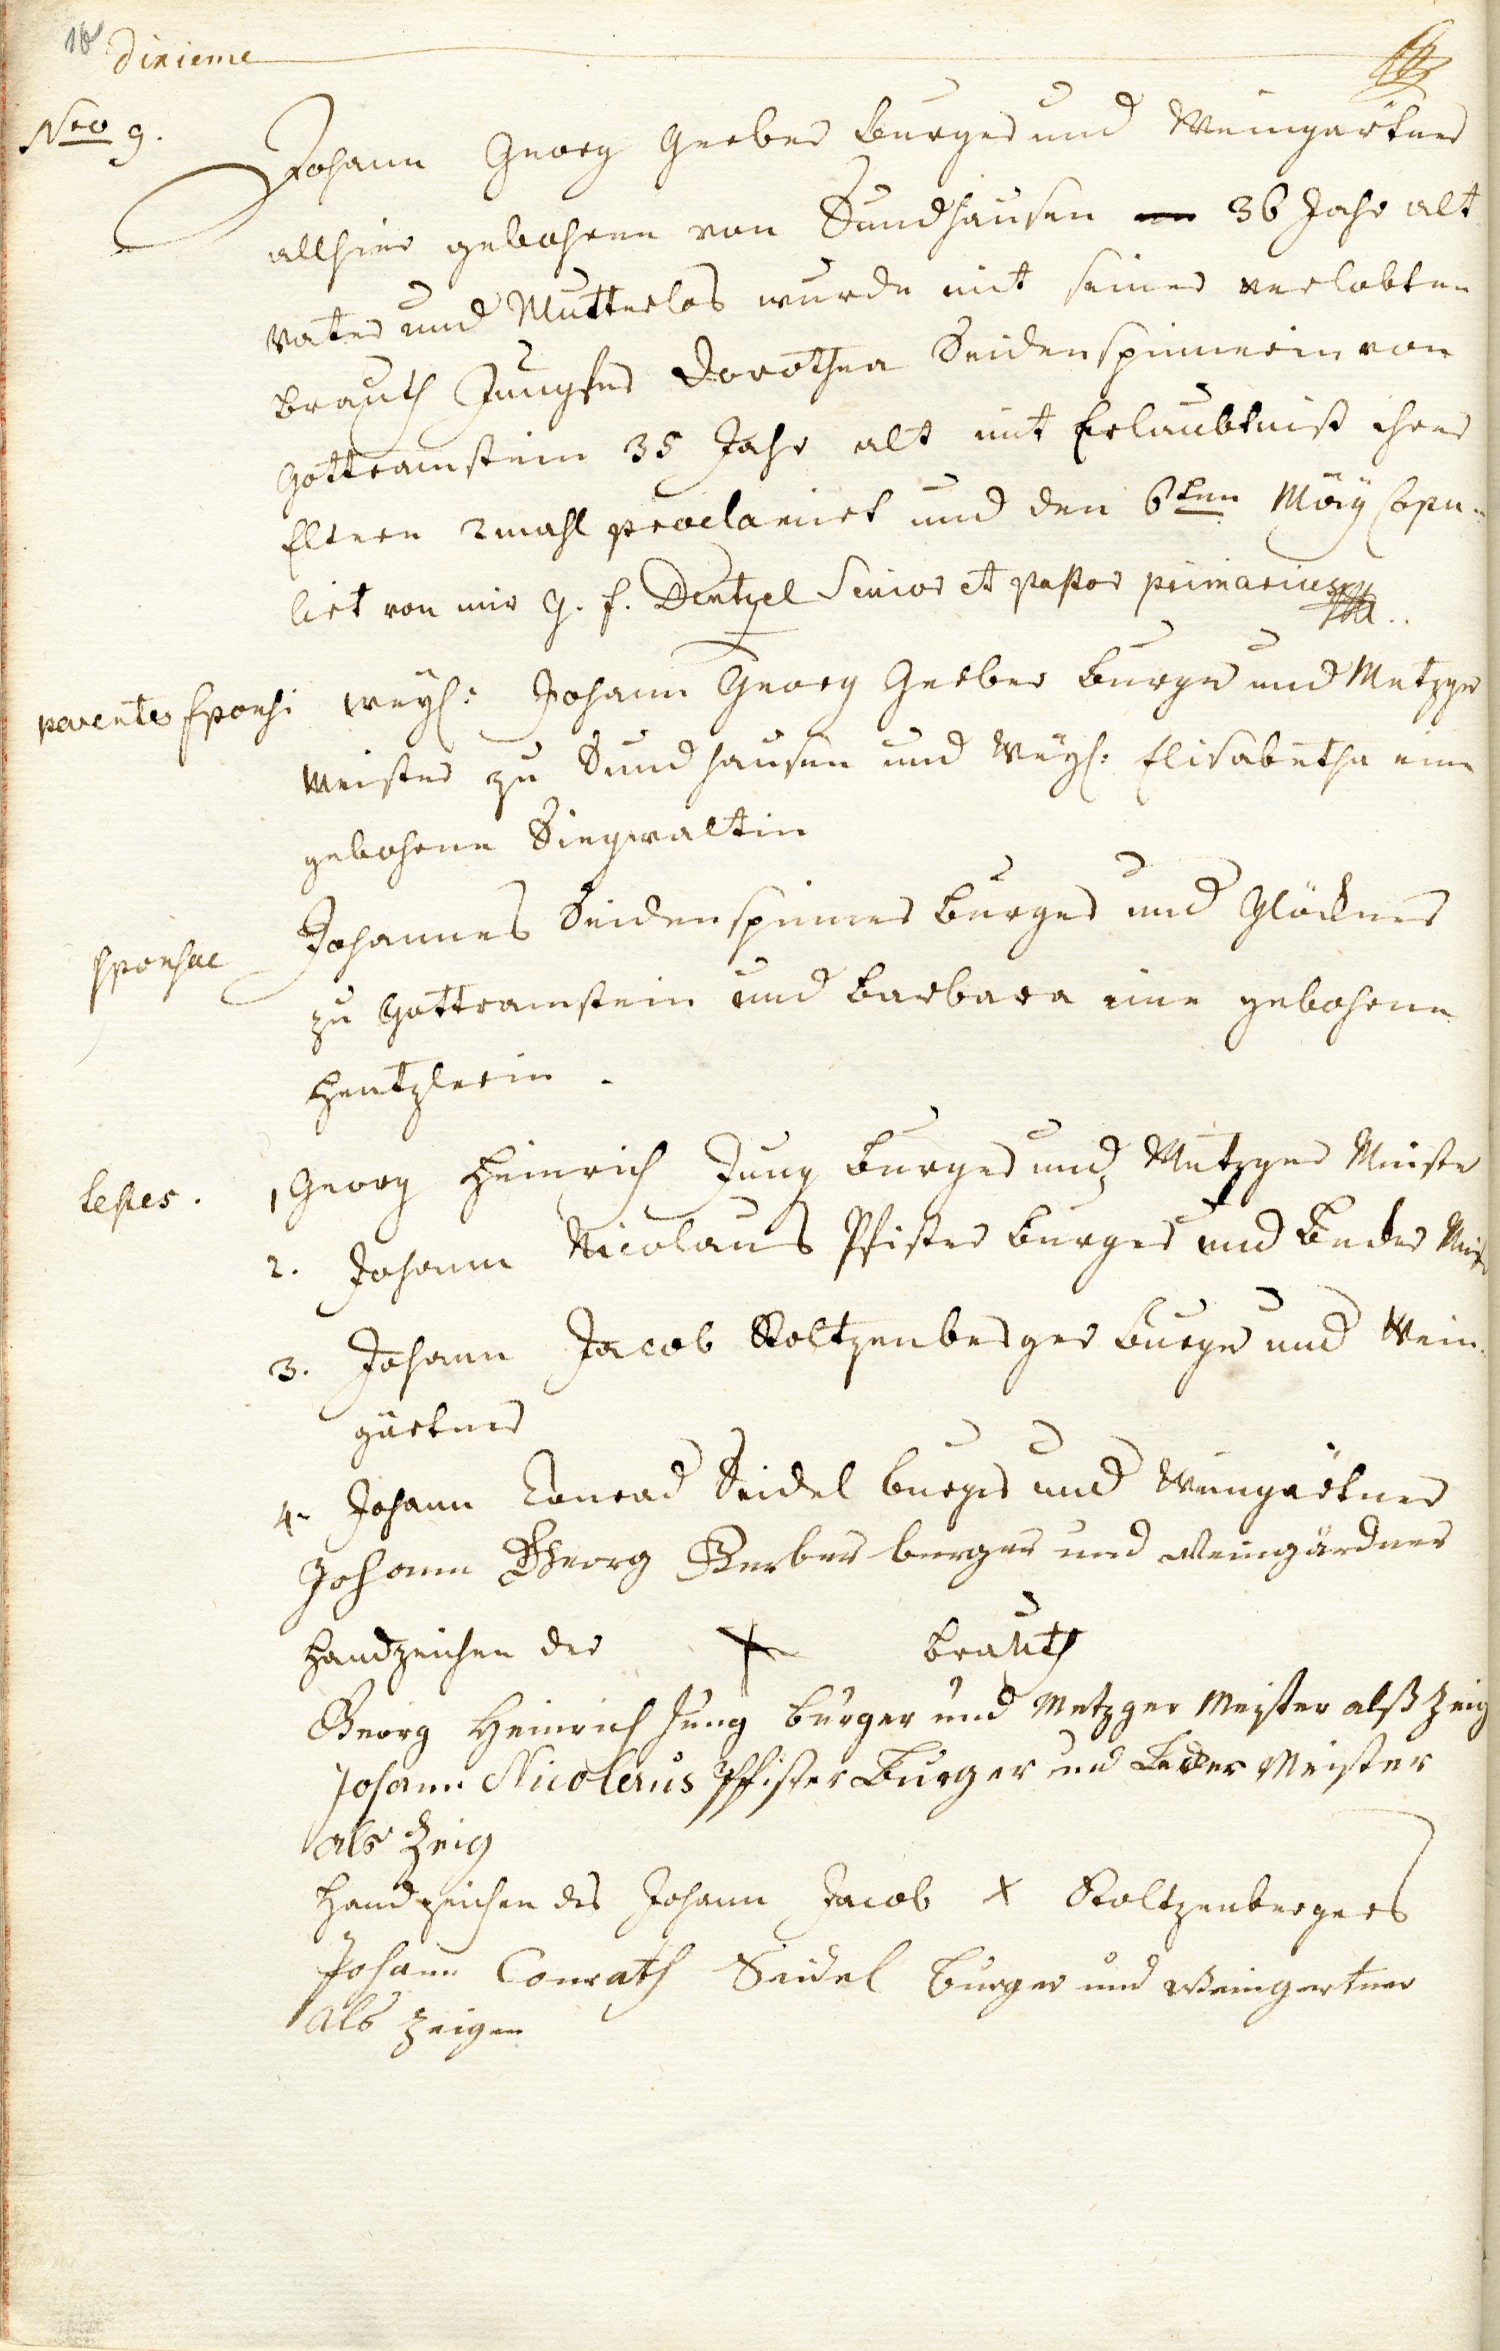 10
dixieme
Nro 9.
Johann Georg Gerber Burger und Weingärtner
allhier gebohren von Sundhausen 36 Jahr alt
Vater und Mutterlos wurde mit seiner verlobten
Brauth Jungfer Dorothea Seidenspinnerin von
Gottramstein 35 Jahr alt mit Erlaubtnist ihrer
Eltern 2mahl proclamirt und den 6ten Mäy Copu-
lirt von mir G. f. Dentzel Senior et pastor primarius
parentes sponsi weyl: Johann Georg Gerber Burger und Metzger
Meister zu Sundhausen und Weyl: Elisabetha eine
gebohrne Siegwaltin
sponsae Johannes Seidenspinner Burger und Glöckner
zu Gottramstein und Barbara eine gebohrne
Hentzlerin.
testes. 1 Georg Heinrich Jung Burger und Metzger Meister
2. Johann Nicolaus Pfister Burger und Becker Meist
3. Johann Jacob Stoltzenberger Burger und Wein-
gärtner
4. Johann Conrad Seidel burger und Weingärtner
Johann Georg Gerber berger und Weingärdner
Handzeichen der X Brauth
Georg Heinrich Jung burger und Metzger Meister alß Zeig
Johann Nicolaus Pfister Burger und Becker Meister
als Zeig
Handzeichen des Johann Jacob X Stoltzenbergers
Johann Conrath Seidel Burger und Weingertner
als Zeigen